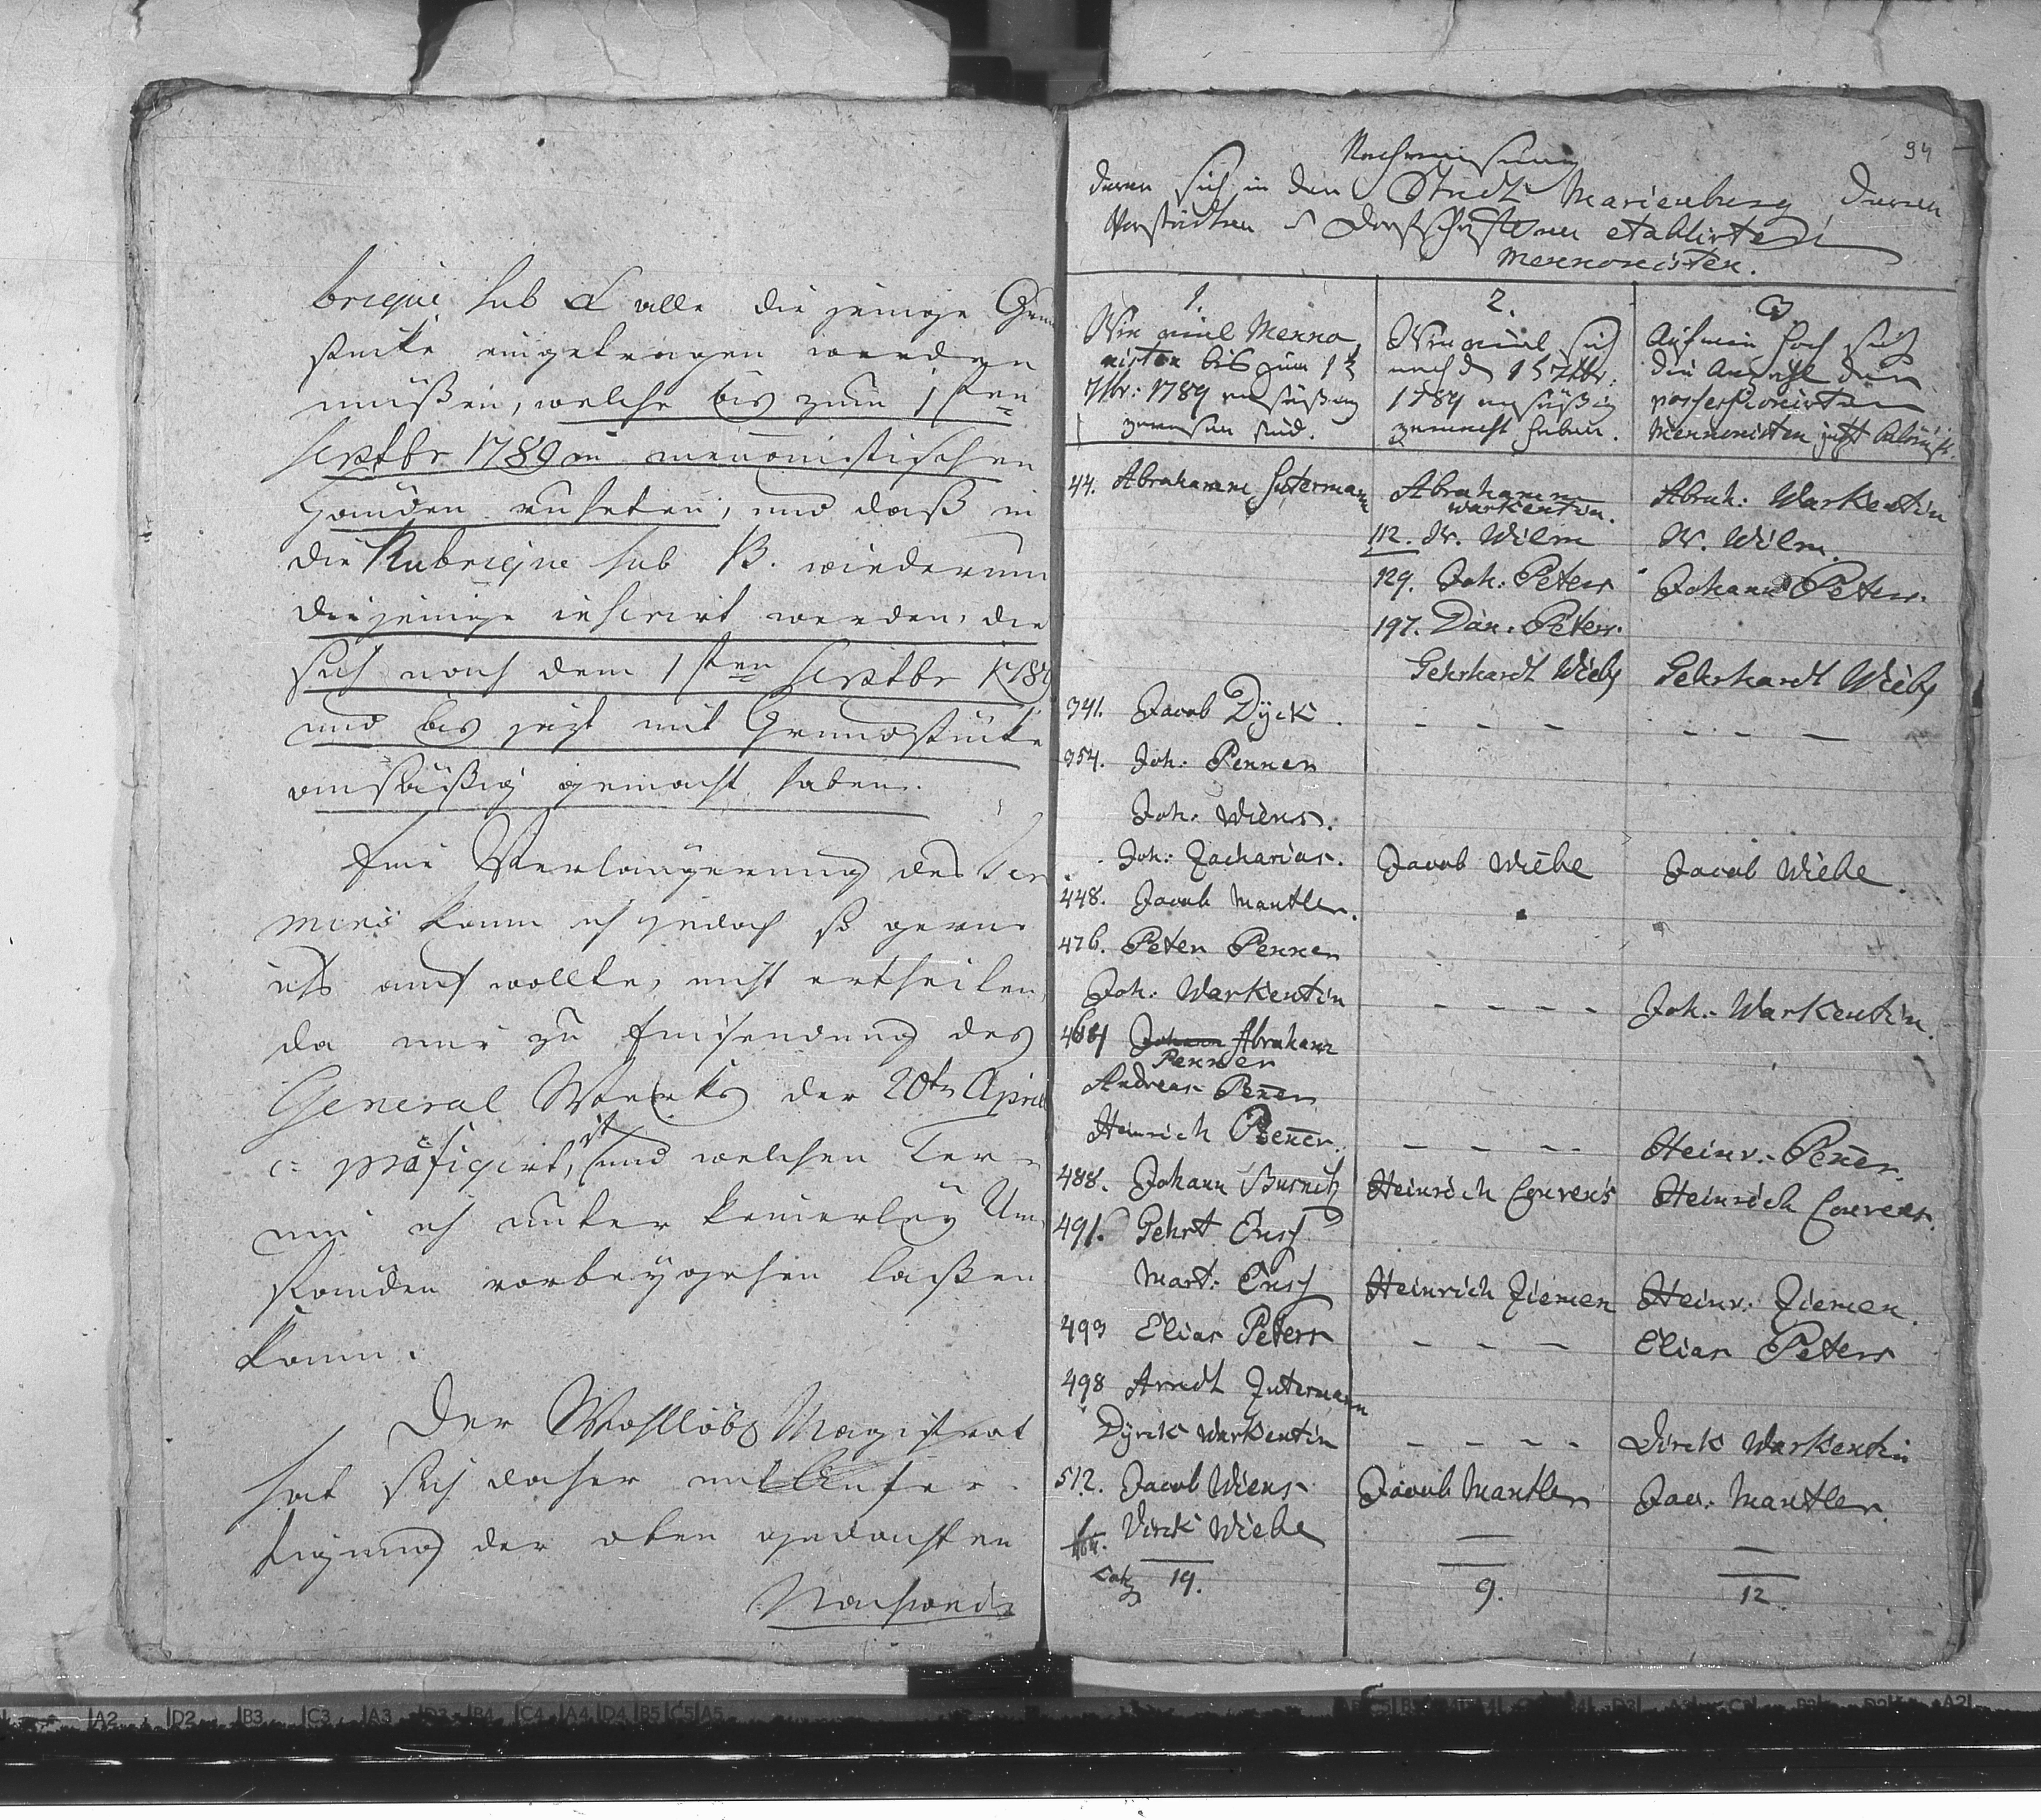 brique sub A alle diejenige Grund
stücke eingetragen werden
müßen, welche bis zum 1sten
Septbr 1789 in menonistischen
Händen ruheten, und daß in
die Rubrique sub B. wiederum
diejenige inserirt werden, die
sich nach dem 1sten Septbr 1789
und bis jezt mit Grundstücke
ansäßig gemacht haben.
Eine Verlängerung des Ter
mins kann ich jedoch so gern
ichs auch wollte, nicht ertheilen,
da mir zu Einsendung des
General Werks der 20te April
c: präfigirt, ist und welchen Ter=
min ich unter keinerley Um
ständen vorbeygehen laßen
kann.
Der Wohllöbl Magistrat
hat sich daher mit Anfer
tigung der oben gedachten
Nachweis
94
Nachweisung
derer sich in der Stadt Marienburg, deren
Vorstädten etablirten
Mennonisten.
1.
Wie viel Menno
nisten bis zum 1t
7tbr: 1789 ansäßig
gewesen sind.
2.
Wie viel sich
nach d 1 7tbr:
1789 ansäßig
gemacht haben.
3.
Auf wie hoch sich
die Anzahl der
possessionirten
Mennonisten jezt beläuft.
44. Abraham Suterman
Abraham Warkentin.
Abrah: Warkentin
112. W. Wilm
W. Wilm.
129. Joh: Peters
Johann Peters.
197. Dan. Peters.
Gehrhardt Wieb
Gehrhardt Wieb
341. Jacob Dyck. - - - - - -
354. Joh: Penner
Joh: Wiens.
Joh: Zacharias. Jacob Wiebe Jacob Wiebe.
448. Jacob Mantler.
476. Peter Penner
Joh: Warkentin - - - - Joh: Warkentin.
484 Johann Abraham
Penner
Andreas Pener
Heinrich Pener. - - - - Heinr: Pener.
488. Johann Busnitz Heinrich Convens Heinrich Convens.
491. Gehrt Ens
Mart: Ens Heinrich Ziemen Heinr: Ziemen.
493 Elias Peters - - - Elias Peters
498 Arndt Suterman
Dyrck Warkentin - - - - Dirck Warkentin
512. Jacob Wiens Jacob Mantler Jac. Mantler.
Dirck Wiebe — —
19. 9. 12.